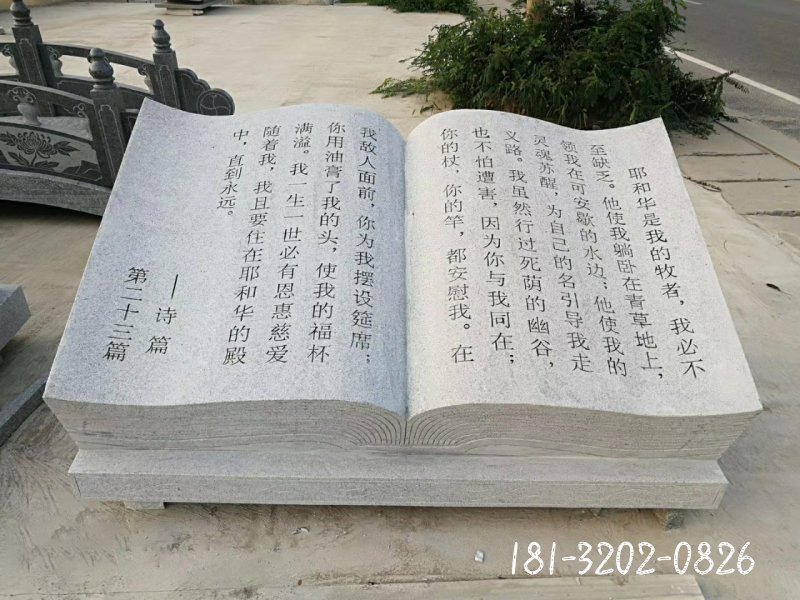 耶和华是我的牧者，我必不
至缺乏。他使我躺卧在青草地上，
领我在可安歇的水边；他使我的
灵魂苏醒，为自己的名引导我走
义路。我虽然行过死荫的幽谷，
也不怕遭害，因为你与我同在；
你的杖，你的竿，都安慰我。在
我敌人面前，你为我摆设筵席；
你用油膏了我的头，使我的福杯
满溢。我一生一世必有恩惠慈爱
随着我，我且要住在耶和华的殿
中，直到永远。
—诗篇
第二十三篇
181-3202-0826